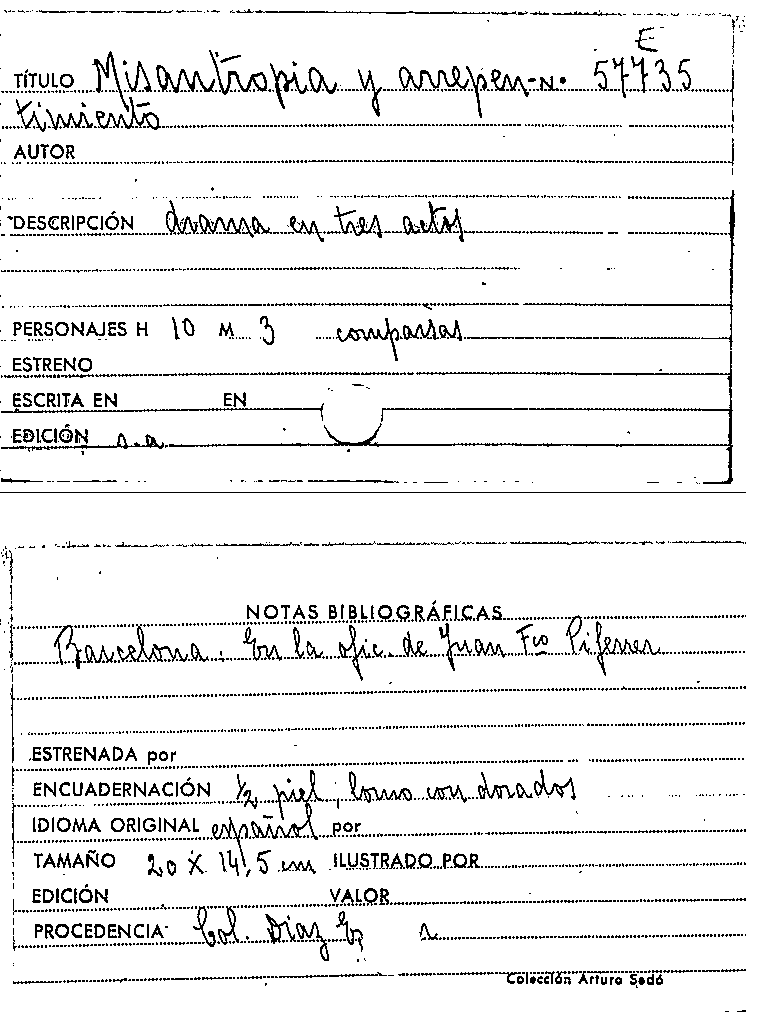 E
TÍTULO Misantropia y arrepen- N.º 57735
timiento
AUTOR
DESCRIPCIÓN drama en tres actos
PERSONAJES H 10 M 3 comparsas
ESTRENO
ESCRITA EN EN
EDICIÓN s.a.
NOTAS BIBLIOGRÁFICAS
Barcelona: En la ofic. de Juan Fco Piferrer
ESTRENADA por
ENCUADERNACIÓN ½ piel; lomo con dorados
IDIOMA ORIGINAL español por
TAMAÑO 20 X 14,5 cm ILUSTRADO POR
EDICIÓN VALOR
PROCEDENCIA Col. Díaz
Colección Arturo Sedó